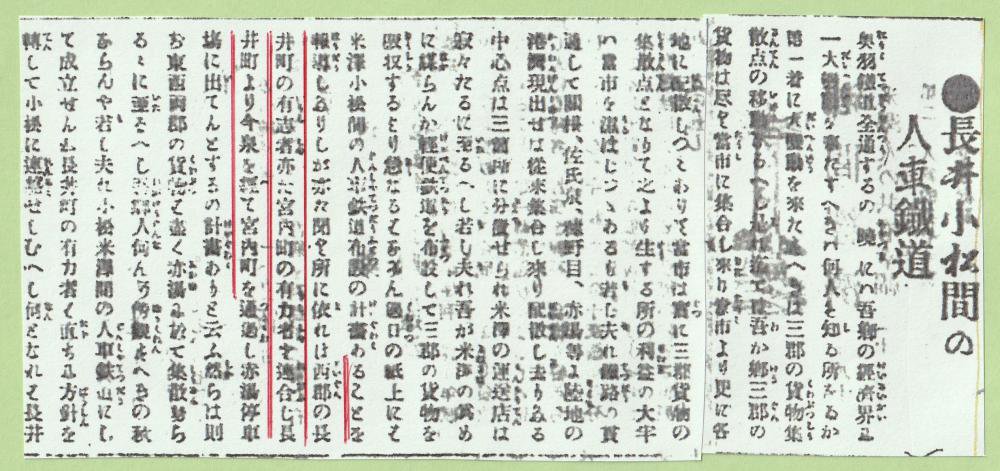 ●長井小松間の
人車鐵道
奥羽鐵道全通するの暁には吾郷の經濟界に
一大を來たすべきは何人も知る所なるか
第一着に大變動を來たすへきは三郡の貨物集
散点の移動なるへし是迄ては吾か郷三郡の
貨物は尽く當市に集合し來り當市より更に各
地に配散しつゝありて當市は實に三郡貨物の
集散点となりて之より生する所の利益の大半
い當市を潤はしつゝあるも若し夫れ鐵路の貫
通して關根、佐氏泉、糠野目、赤湯等よ陸地の
港灣現出せは從來集合し來り配散し去りみる
中心点は三四所に分置せられ米澤の運送店は
寂々たるに至るへし若し夫れ吾が米澤の為め
に謀らんか軽便鉄道を布設して三郡の貨物を
吸収するより急なるとあるん過日の紙上にそ
米澤小松間の人車鉄道布設の計畫あることを
報導しありしが亦た聞く所に依れは西郡の長
井町の有志者亦た宮内町の有力者と連合し長
井町より今泉を經て宮内町を通過し赤湯停車
塲に出てんとするの計畫ありと云ふ然らは則
ち東西兩郡の貨物は盡く亦湯に於て集散せら
るゝに至るへし郷人何んぞ傍觀すへきの秋
ならんや若し夫れ小松米澤間の人車鉄道にし
て成立せんか長井町の有力者く直ち此方針を
轉して小松に連絡せしむへし何となれは長井